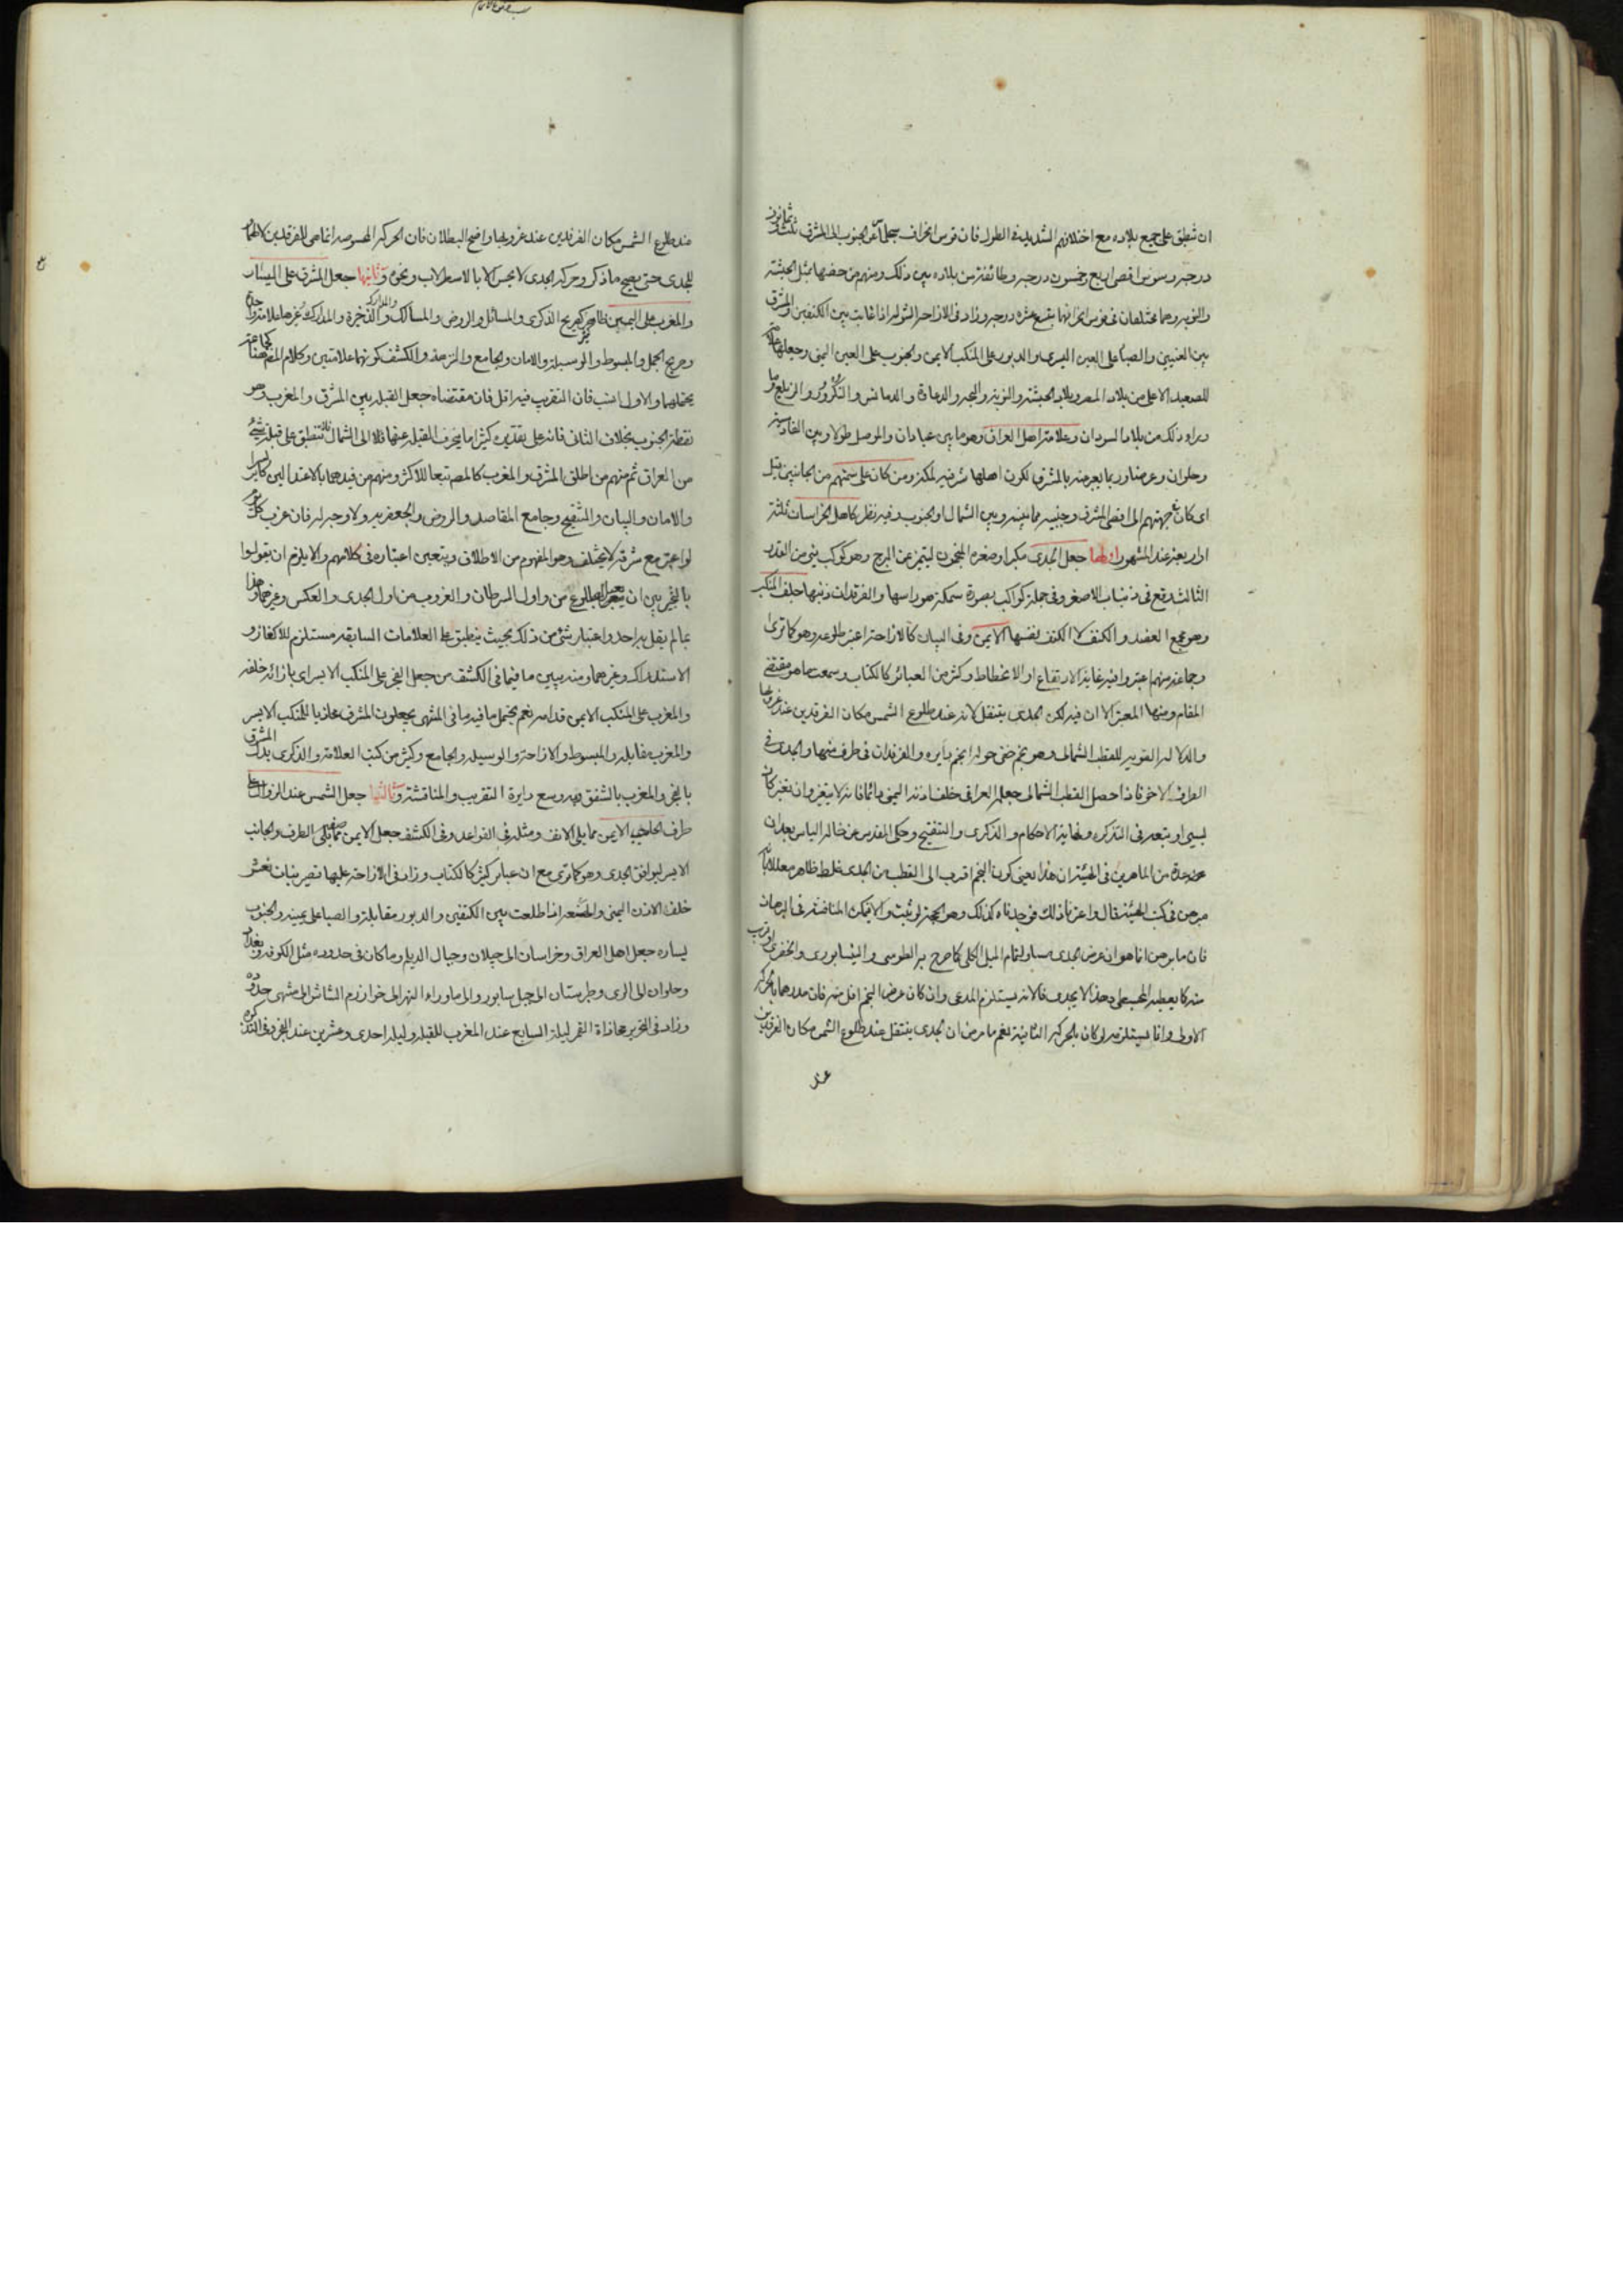 ان تنطبق على جميع بلاده مع اختلافهم الشديد في الطول فان قوس انحراف عن الجنوب الى المشرق ثلث وثمانون
درجة وسوس اقصى اربع وخمسون درجة وطائفة من بلاده بين ذلك ومنهم من خصها بمثل الحبشة
والنوبة وهما مختلفان في قوس انحرافهما بتسع عشرة درجة وزاد في الازاحة اذا غابت بين الكتفين والمشرق
بين العينين والصبا على العين اليسرى والدبور على المنكب الايمن والجنوب على العين اليمنى وجعلها
للصعيد الاعلى من بلاد المصر وبلاد الحبشة والنوبة والبجة والدمانس والتكرور والزيلع وما
وراء ذلك من بلاد السودان وعلامة اهل العراق وهو ما بين عبادان والموصل طولا وبين القادسية
وحلوان وعرضا وربما يعبر منه بالمشرق لكون اهلها شرقية لمكة ومن كان على سمتهم من الجانبين قبل
اي كان جهتهم الى اقصى المشرق وجنبيه مما بينه وبين الشمال او الجنوب وفيه نظر كاهل الخراسان ثلثة
او اربعة عند المشهور اولها جعل الجدي مكبرا وصغره المنجمون ليتميز عن البرج وهو كوكب بنى من القدر
الثالث يقع في ذنب الاصغر وفي جملة كواكب بصورة سمكة هو راسها والفرقدان ذنبها خلف المنكب
وهو مجمع العضد والكتف لا الكتف نفسها الايمن وفي البيان كالازاحة اعتبر طلوعه وهو كما ترى
وجماعة منهم اعتبروا فيه غاية الارتفاع او الانخفاط وكثر من العبائر كالكتاب وسمعت ما هو مقتضى
المقام ومنها المعتبر الا ان فيه لكن الجدي ينتقل لانه عند طلوع الشمس مكان الفرقدين عند غروبها
والدلالة القوية للقطب الشمالي وهو نجم خفي حوله انجم دايرة والفرقدان في طرف منها والجدي في
الطرف الاخر فاذا حصل القطب الشمالي جعله العراقي خلف اذنه اليمنى دائما فانه لا يتغير وان تغير كان
يسيرا وتبعه في التذكرة ونهاية الاحكام والذكرى والتنقيح وحكى المقدس عن خاله الياس بعد ان
عده من الماهرين في الهيئة ان هذا يعني كون النجم اقرب الى القطب من الجدي غلط ظاهر معللا بانه
مبرهن في كتب الهيئة قال واعتبرنا ذلك فوجدناه كذلك وهو الحجة لو ثبت والا فيمكن المناقشة في البرهان
فان ما برهن انما هو ان عرض الجدي مساو لتمام الميل الكلي كما صرح به الطوسي والنيشابوري والخفري او قرب
منه كما يعطيه المجسطي وهذا لا يجدي فانه لا يستلزم المدعى وان كان عرض النجم اقل منه فان مدرهما بالحركة
الاولى وانما يستلزمه لو كان بالحركة الثانية نعم ما مر من ان الجدي ينتقل عند طلوع الشمس مكان الفرقدين
عند
عند طلوع الشمس مكان الفرقدين عند غروبها واضح البطلان فان الحركة انما هي للفرقدين لا
للجدي حتى يصح ما ذكر وحركة الجدي لا يحس الا بالاسطرلاب ونحوه وثانيها جعل المشرق على اليسار
والمغرب على اليمين كصريح الذكرى والمسائل والروض والمسالك والذخيرة والمدارك وغيرها علامة واحدة
وصريح الجمل والمبسوط والوسيلة والامان والجامع والنزهة والكشف كونهما علامتين وكلام المصنف
يحتملهما والاول انسب فان التقريب فيه اقل فان مقتضاه جعل القبلة بين المشرق والمغرب وهو
نقطة الجنوب بخلاف الثاني فانه على تقديره كثيرا ما ينحرف القبلة عنها الى الشمال فلا تنطبق على قبلة شيء
من العراق ثم منهم من اطلق المشرق والمغرب كالمصنف تبعا للاكثر ومنهم من قيدهما بالاعتدالين
والامان والبيان والتنقيح وجامع المقاصد والروض والجعفرية ولا وجه له فان مغرب كل
لو اعتبر مع مشرقه لا يختلف وهو المفهوم من الاطلاق ويتعين اعتباره في كلامهم والا يلزم ان يقولوا
بالتخيير بين ان يعتبر الطلوع من اول السرطان والغروب من اول الجدي والعكس وغيرهما وهذا
مما لم يقل به احد واعتبار شيء من ذلك بحيث ينطبق على العلامات السابقة مستلزم للالغاز و
الاستدراك وغيرهما ومنه يبين ما في الكشف من جعل الفجر على المنكب الايسر اي بازائه خلفه
والمغرب على المنكب الايمن قدامه نعم يحتمل ما فيه ما في المنتهى يجعلون المشرق محاذيا للمنكب الايسر
والمغرب مقابله والمبسوط والازاحة والوسيلة والجامع وكثير من كتب العلامة والذكرى بدل المشرق
بالفجر والمغرب بالشفق وبه وسع دايرة التقريب والمناقشة وثالثها جعل الشمس عند الزوال على
طرف الحاجب الايمن مما يلي الانف ومثله في القواعد وفي الكشف جعل الايمن صفة الطرف والجانب
الايسر ليوافق الجدي وهو كما ترى مع ان عبائر كثير كالكتاب وزاد في الازاحة عليها تصير بنات نعش
خلف الاذن اليمنى والهنعة اذا طلعت بين الكتفين والدبور مقابله والصبا على يمينه والجنوب
يساره جعل اهل العراق وخراسان الى جيلان وجبال الديلم وما كان في حدوده مثل الكوفة وبغداد
وحلوان الى الري وطبرستان الى جبل سابور والى ما وراء النهر الى خوارزم الشاش الى منتهى حدوده
وزاد في التحرير محاذاة القمر ليلة السابع عند المغرب للقبلة وليلة احدى وعشرين عند الفجر وفي التذكرة